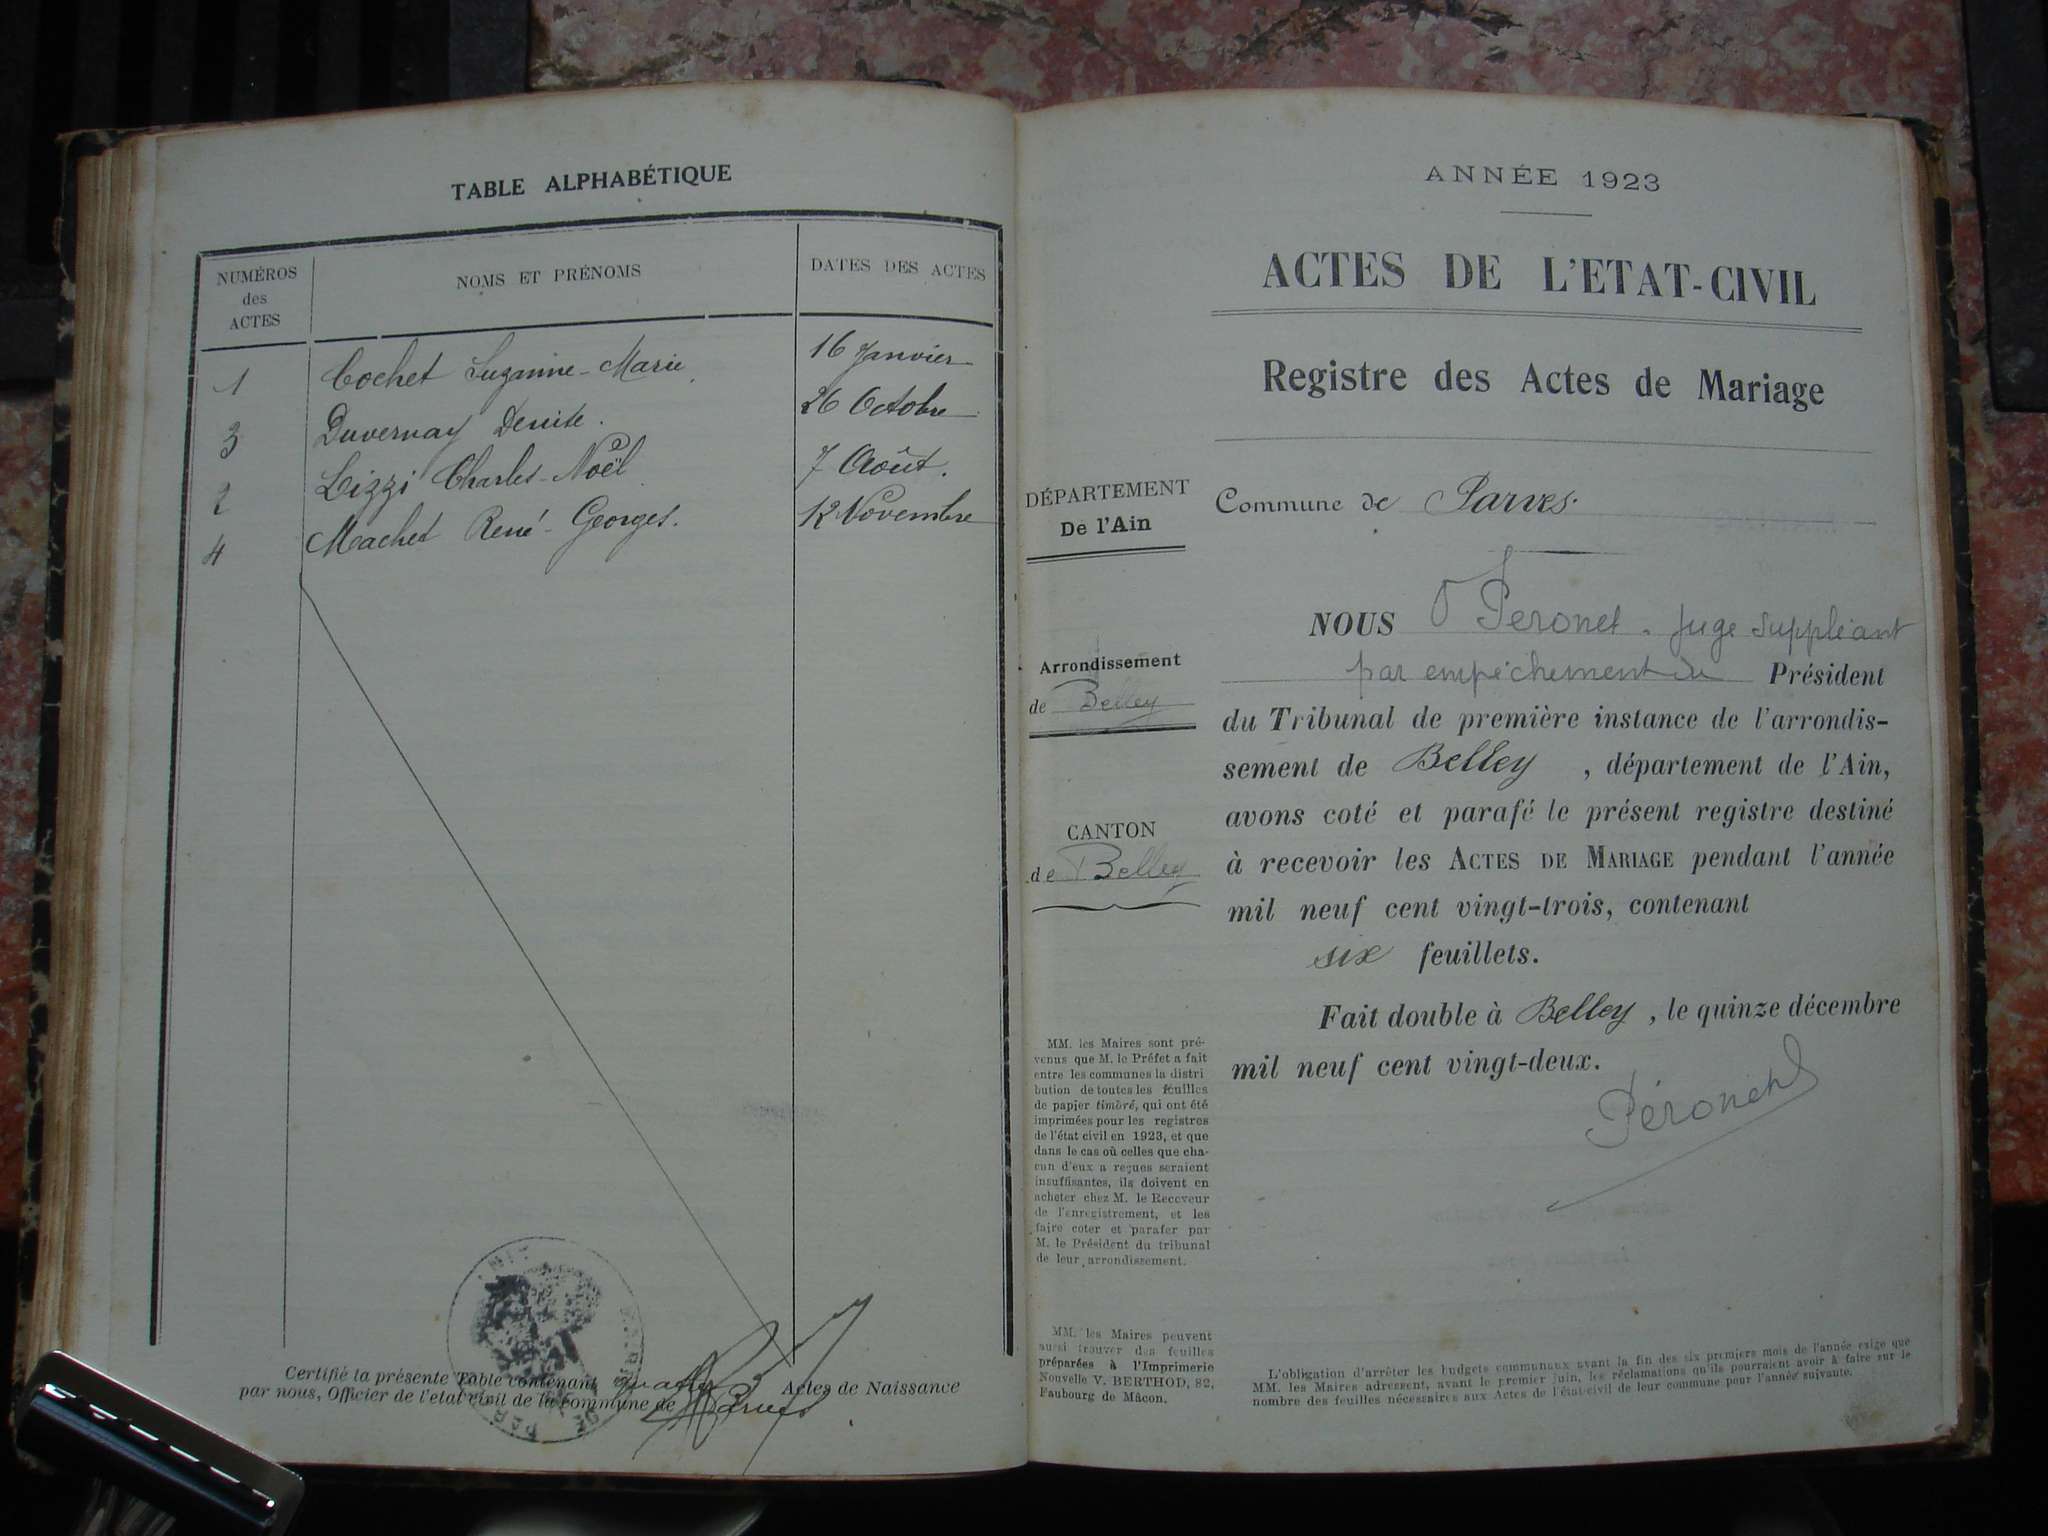 TABLE ALPHABÉTIQUE
NUMÉROS des ACTES
NOMS ET PRÉNOMS
DATES DES ACTES
1 Cochet Suzanne-Marie 16 Janvier
3 Duvernay Denise. 26 Octobre
2 Lizzi Charles-Noël 7 Août.
4 Machet René-Georges. 12 Novembre
Certifié la présente Table contenant quatre Actes de Naissance
par nous, Officier de l'etat civil de la commune de Parves
ANNÉE 1923
ACTES DE L'ETAT-CIVIL
Registre des Actes de Mariage
DÉPARTEMENT
De l'Ain
Commune de Parves.
Arrondissement
de Belley
CANTON
de Belley
NOUS Péronet. juge suppléant
par empêchement du Président
du Tribunal de première instance de l'arrondis-
sement de Belley, département de l'Ain,
avons coté et parafé le présent registre destiné
à recevoir les ACTES DE MARIAGE pendant l'année
mil neuf cent vingt-trois, contenant
six feuillets.
Fait double à Belley, le quinze décembre
mil neuf cent vingt-deux.
Péronet
MM. les Maires sont pré-
venus que M. le Préfet a fait
entre les communes la distri
bution de toutes les feuilles
de papier timbré, qui ont été
imprimées pour les registres
de l'état civil en 1923, et que
dans le cas où celles que cha-
cun d'eux a reçues seraient
insuffisantes, ils doivent en
acheter chez M. le Receveur
de l'enregistrement, et les
faire coter et parafer par
M. le Président du tribunal
de leur arrondissement.
MM. les Maires peuvent
aussi trouver des feuilles
préparées à l'Imprimerie
Nouvelle V. BERTHOD, 82,
Faubourg de Mâcon.
L'obligation d'arrêter les budgets communaux avant la fin des six premiers mois de l'année exige que
MM. les Maires adressent, avant le premier juin, les réclamations qu'ils pourraient avoir à faire sur le
nombre des feuilles nécessaires aux Actes de l'état-civil de leur commune pour l'année suivante.